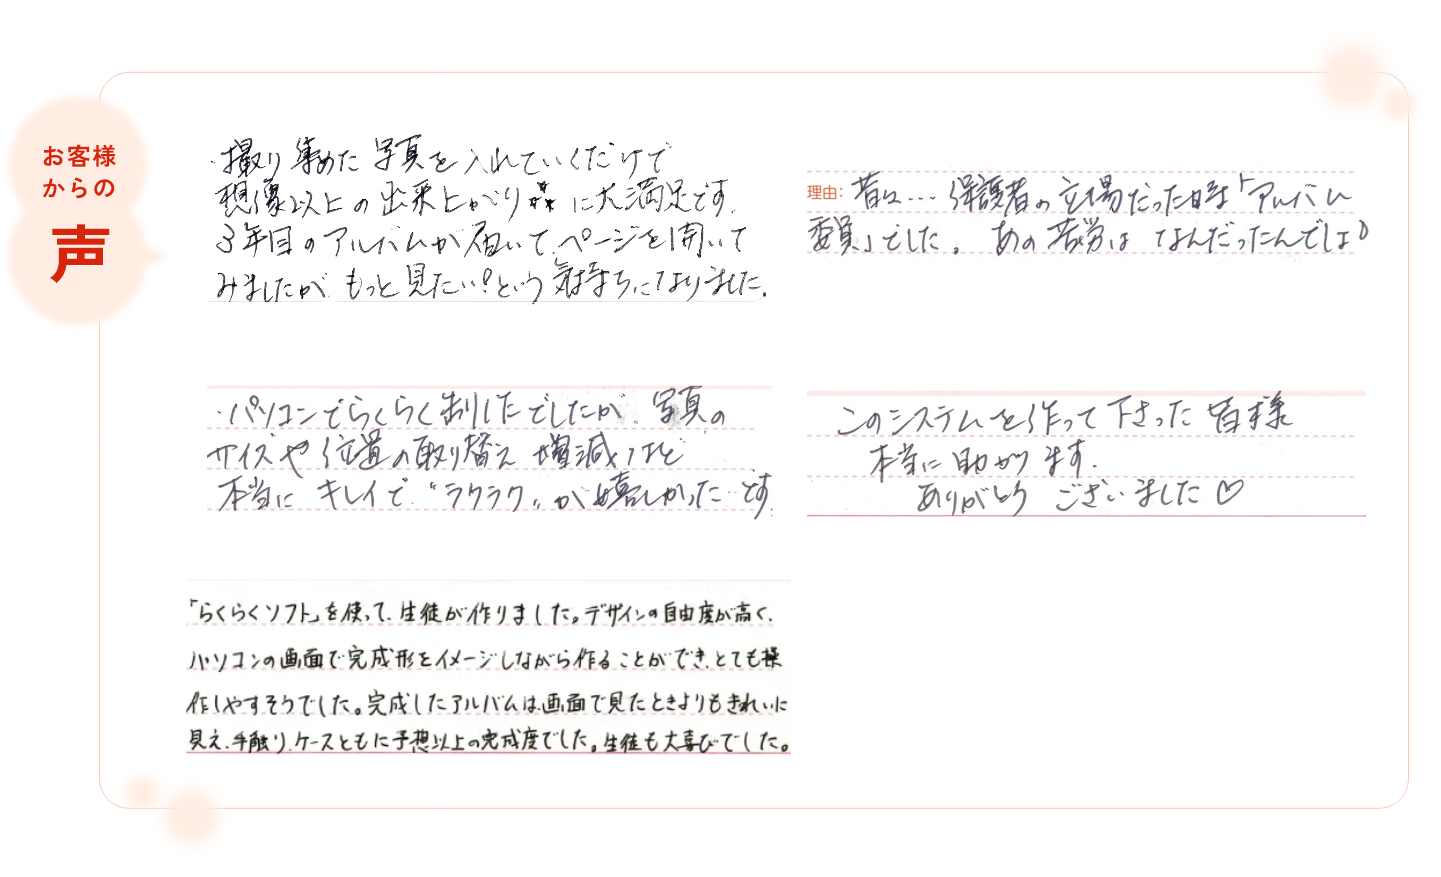 お客様
からの
声
・撮り集めた写真を入れていくだけで
想像以上の出来上がりに大満足です。
3年目のアルバムが届いて、ページを開いて
みましたが、もっと見たい!という気持ちになりました。
理由: 昔々… 保護者の立場だった時「アルバム
委員」でした。あの苦労はなんだったんでしょう
・パソコンでらくらく制したでしたが、写真の
サイズや位置の取り替え 増減など
本当に キレイで“ラクラク”が嬉しかったです。
このシステムを作って下さった皆様
本当に助かります。
ありがとうございました♡
「らくらくソフト」を使って、生徒が作りました。デザインの自由度が高く、
パソコンの画面で完成形をイメージしながら作ることができ、とても操
作しやすそうでした。完成したアルバムは、画面で見たときよりもきれいに
見え、手触り、ケースともに予想以上の完成度でした。生徒も大喜びでした。